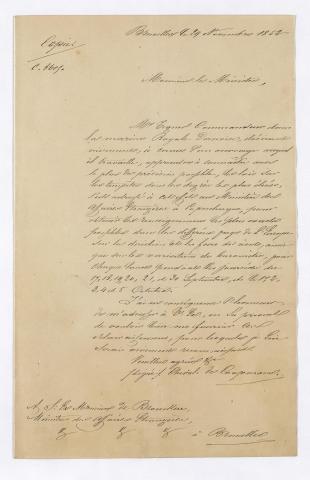 Copie
C. 8605.
Bruxelles le 29 Novembre 1852
Monsieur le Ministre,
Mr Commandeur dans
la marine Royale Danoise, désirant
vivement, à cause d'un ouvrage auquel
il travaille, apprendre à connaître avec
le plus de précision possible, les lois sur
les tempêtes dans les degrés les plus élevés,
s'est adressé à cet effet au Ministère des
affaires Etrangères à Copenhague, pour
obtenir les renseignements les plus exacts
possibles dans les différents pays de l'Europe
sur la direction et la force des vents, ainsi
que sur les variations du baromètre, pour
chaque heure pendant les journées de
17, 18, 19, 20, 21, 30 Septembre, et le 1, 2,
3, 4 & 5 Octobre.
J'ai en conséquence l'honneur
de m'adresser à V. Ex. en la priant
de vouloir bien me fournir ces
éclaircissements, pour lesquels je Lui
serais vivement reconnaissant
Veuillez agréer &a
(signé)
A. S. Ex. Monsieur de Brouckere,
Ministre des affaires Etrangères,
à Bruxelles